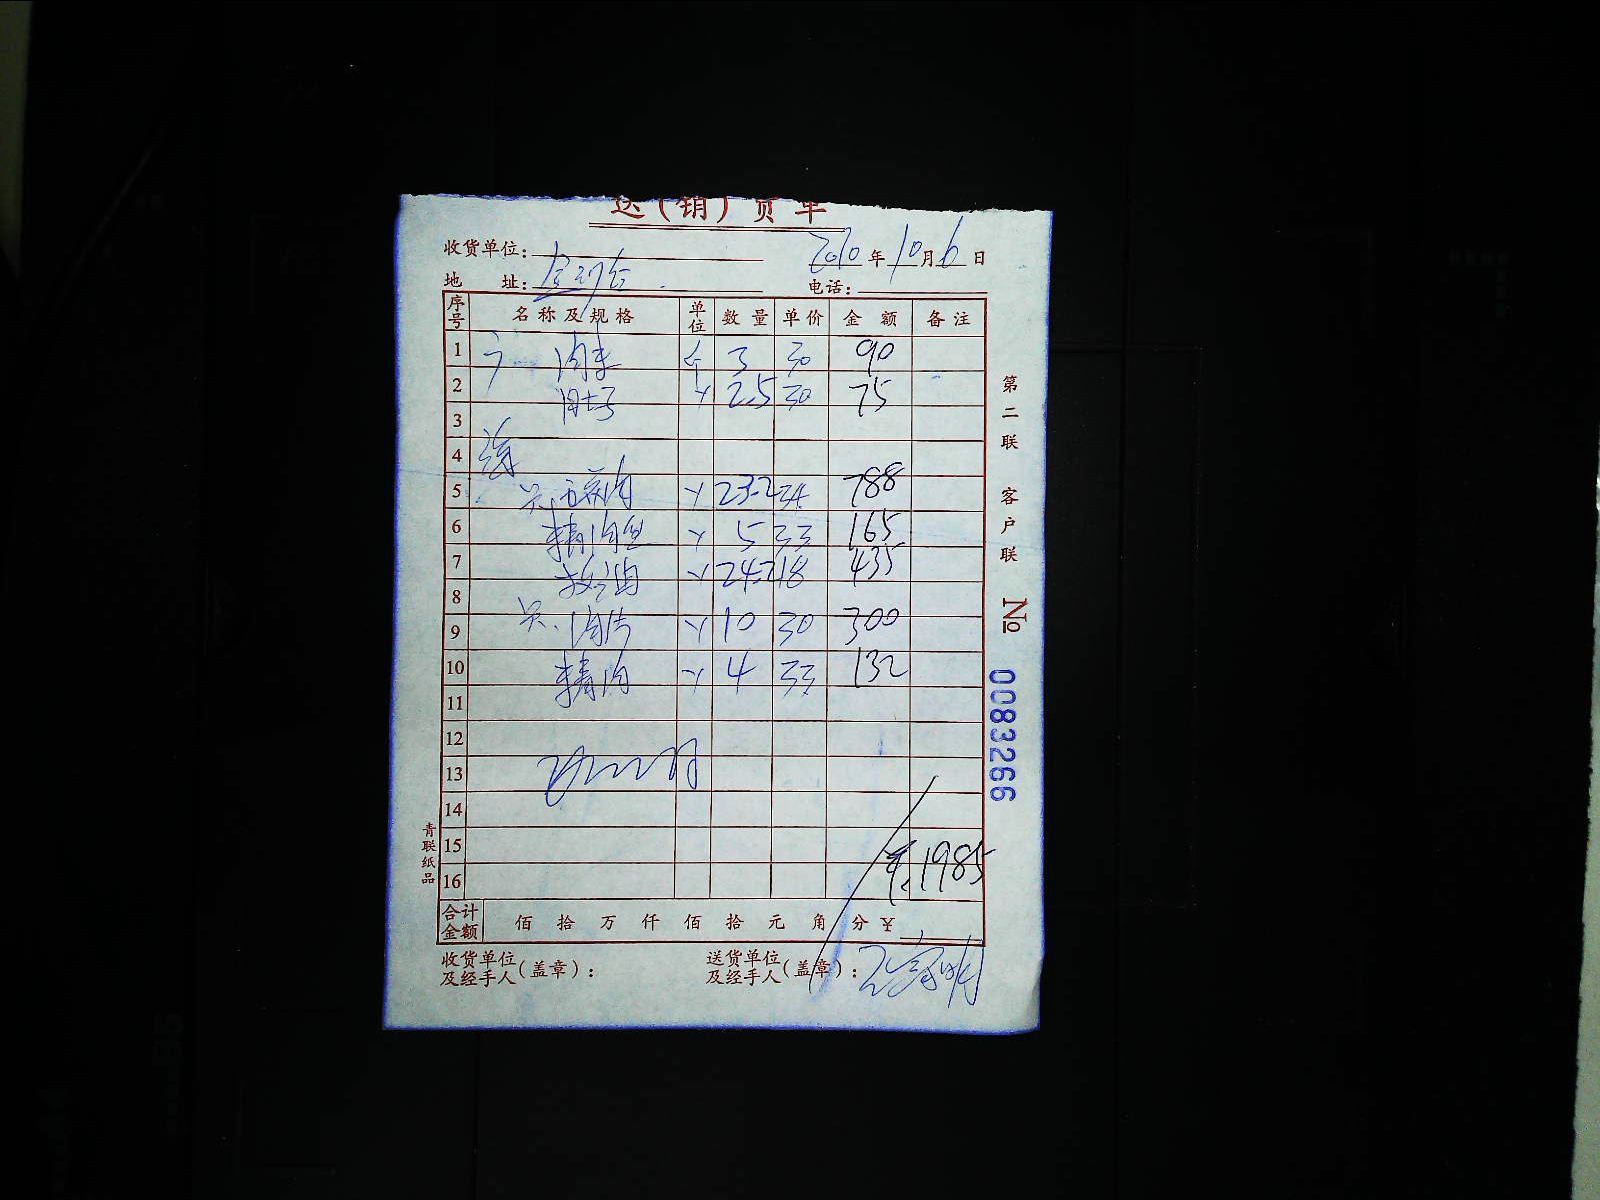 送(销)货单
收货单位:
2020年10月6日
地 址:
电话:
序号 名称及规格 单位 数量 单价 金额 备注
1 肉末 斤 3 30 90
2 肚子 2.5 30 75
3
4
5 五花肉 23.2 34 788
6 精肉丝 5 33 165
7 板油 24.2 18 435
8
9 肉片 10 30 300
10 精肉 4 33 132
11
12
13
14
15
16
¥1985
合计金额 佰 拾 万 仟 佰 拾 元 角 分 ¥
收货单位及经手人(盖章):
送货单位及经手人(盖章):
第二联 客户联
№ 0083266
青联纸品